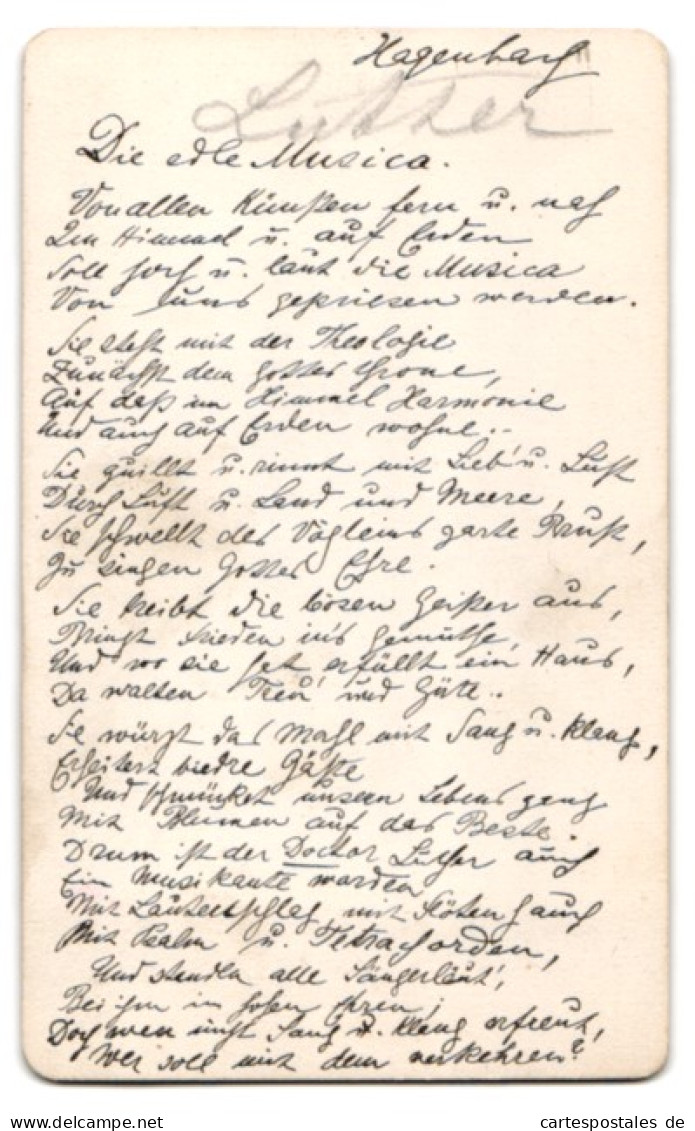 Hagenbach
Luther
Die edle Musica.
Von allen Künsten fern u. nah
Im Himmel u. auf Erden
Soll hoch u. laut die Musica
Von uns gepriesen werden.
Sie steht mit der Theologie
Zunächst dem Gottes Throne,
Auf daß im Himmel Harmonie
Und auch auf Erden wohne..
Sie quillt u. rinnt mit Lieb' u. Lust
Durch Luft u. Land und Meere,
Sie schwellt des Vögleins zarte Brust,
Zu singen Gottes Ehre.
Sie treibt die bösen Geister aus,
Bringt Frieden in's Gemüthe,
Und wo sie hat erfüllt ein Haus,
Da walten Treu' und Güte..
Sie würzt das Mahl mit Sang u. Klang,
Erheitert biedre Gäste
Und schmücket unsern Lebensgang
Mit Blumen auf das Beste.
Drum ist der Doctor Luther auch
Ein Musikante worden
Mit Lautenschlag, mit Flötenhauch
Mit Psalm u. Tetrachorden,
Und standen alle Sängerleut',
Bei ihm in hohen Ehren;
Doch wen nicht Sang u. Klang erfreut,
Wer soll mit dem verkehren?
cartespostales de